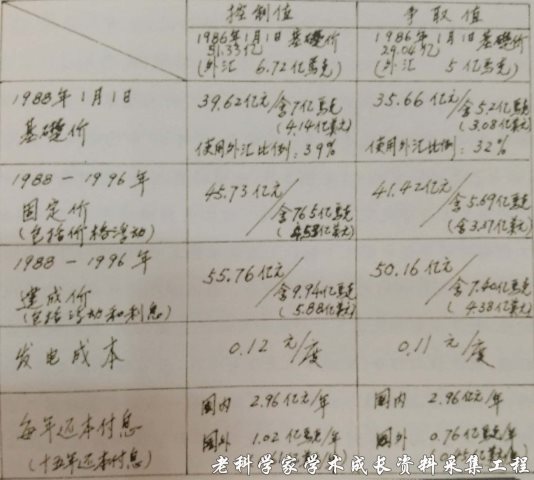 控制值
争取值
1986年1月1日基础价
31.33亿
(外汇 6.72亿马克)
1986年1月1日基础价
29.04亿
(外汇 5亿马克)
1988年1月1日
基础价
39.62亿元/含7亿马克
(4.14亿美元)
使用外汇比例:39%
35.66亿元/含5.2亿马克
(3.08亿美元)
使用外汇比例:32%
1988-1996年
固定价
(包括价格浮动)
45.73亿元/
含7.65亿马克
(4.53亿美元)
41.42亿元/
含5.69亿马克
(含3.37亿美元)
1988-1996年
建成价
(包括浮动和利息)
55.76亿元/
含9.94亿马克
(5.88亿美元)
50.16亿元/
含7.40亿马克
(4.38亿美元)
发电成本
0.12元/度
0.11元/度
每年还本付息
(十五年还本付息)
国内 2.96亿元/年
国外 1.02亿马克/年
国内 2.96亿元/年
国外 0.76亿马克/年
老科学家学术成长资料采集工程